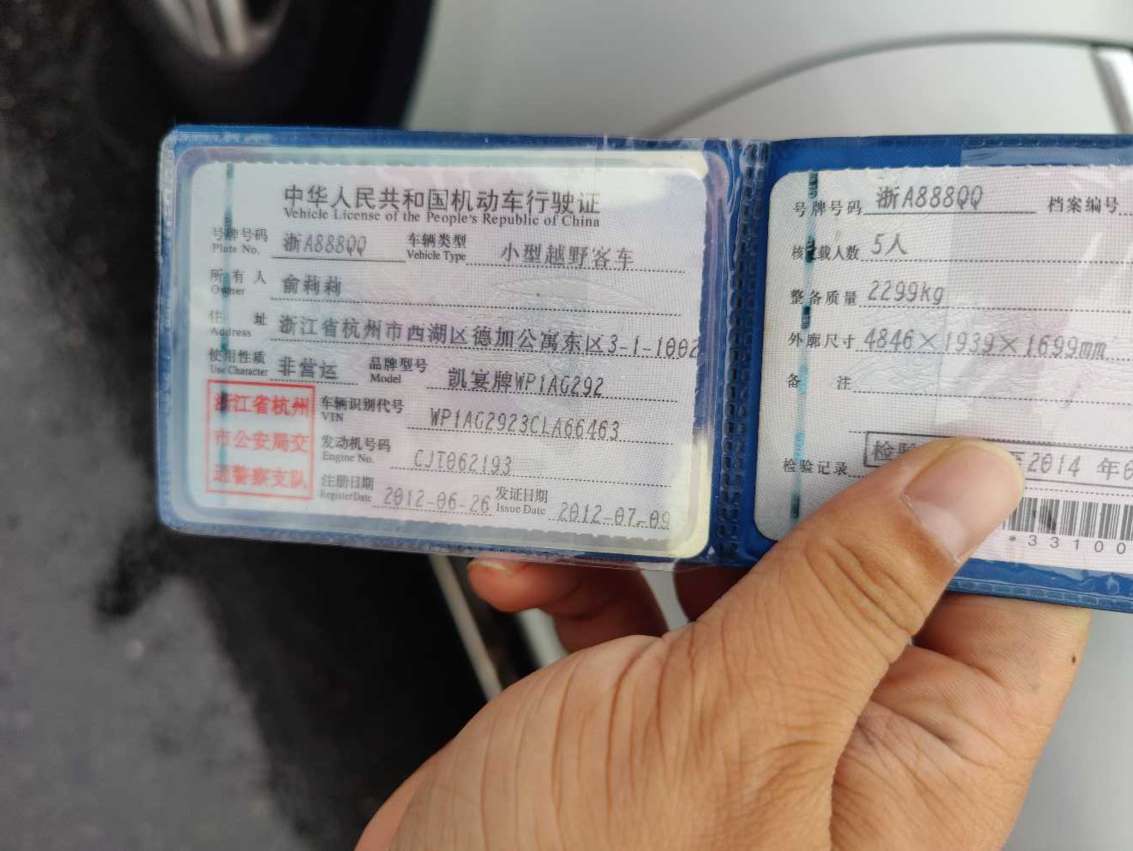 中华人民共和国机动车行驶证
Vehicle License of the People's Republic of China
号牌号码 浙A888QQ 车辆类型 小型越野客车
Plate No. Vehicle Type
所有人 俞莉莉
Owner
住址 浙江省杭州市西湖区德加公寓东区3-1-1002
Address
使用性质 非营运 品牌型号 凯宴牌WP1AG292
Use Character Model
浙江省杭州
市公安局交
通警察支队
车辆识别代号 WP1AG2923CLA66463
VIN
发动机号码 CJT062193
Engine No.
注册日期 2012-06-26 发证日期 2012-07-09
Register Date Issue Date
号牌号码 浙A888QQ 档案编号
核定载人数 5人
整备质量 2299kg
外廓尺寸 4846×1939×1699mm
备注
检验记录 检验 2014 年
*33100